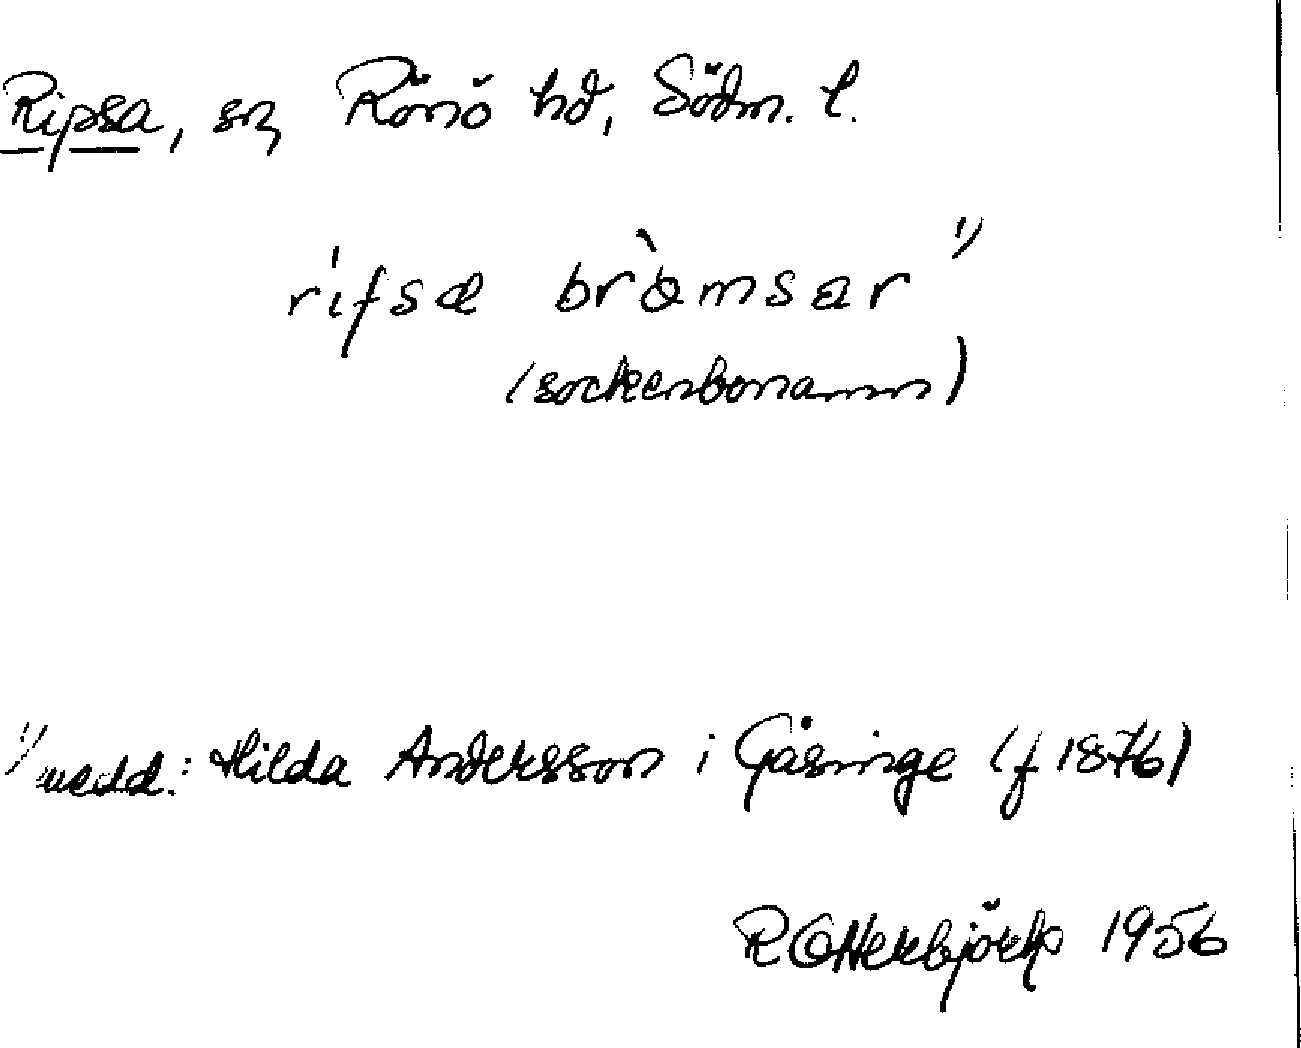 Ripsa, sn, Rönö hd, Södm. l.
rífsæ bròmsar 1)
(sockenbonamn)
1) medd.: Hilda Andersson i Gåsinge (f 1876)
R Otterbjörk 1956